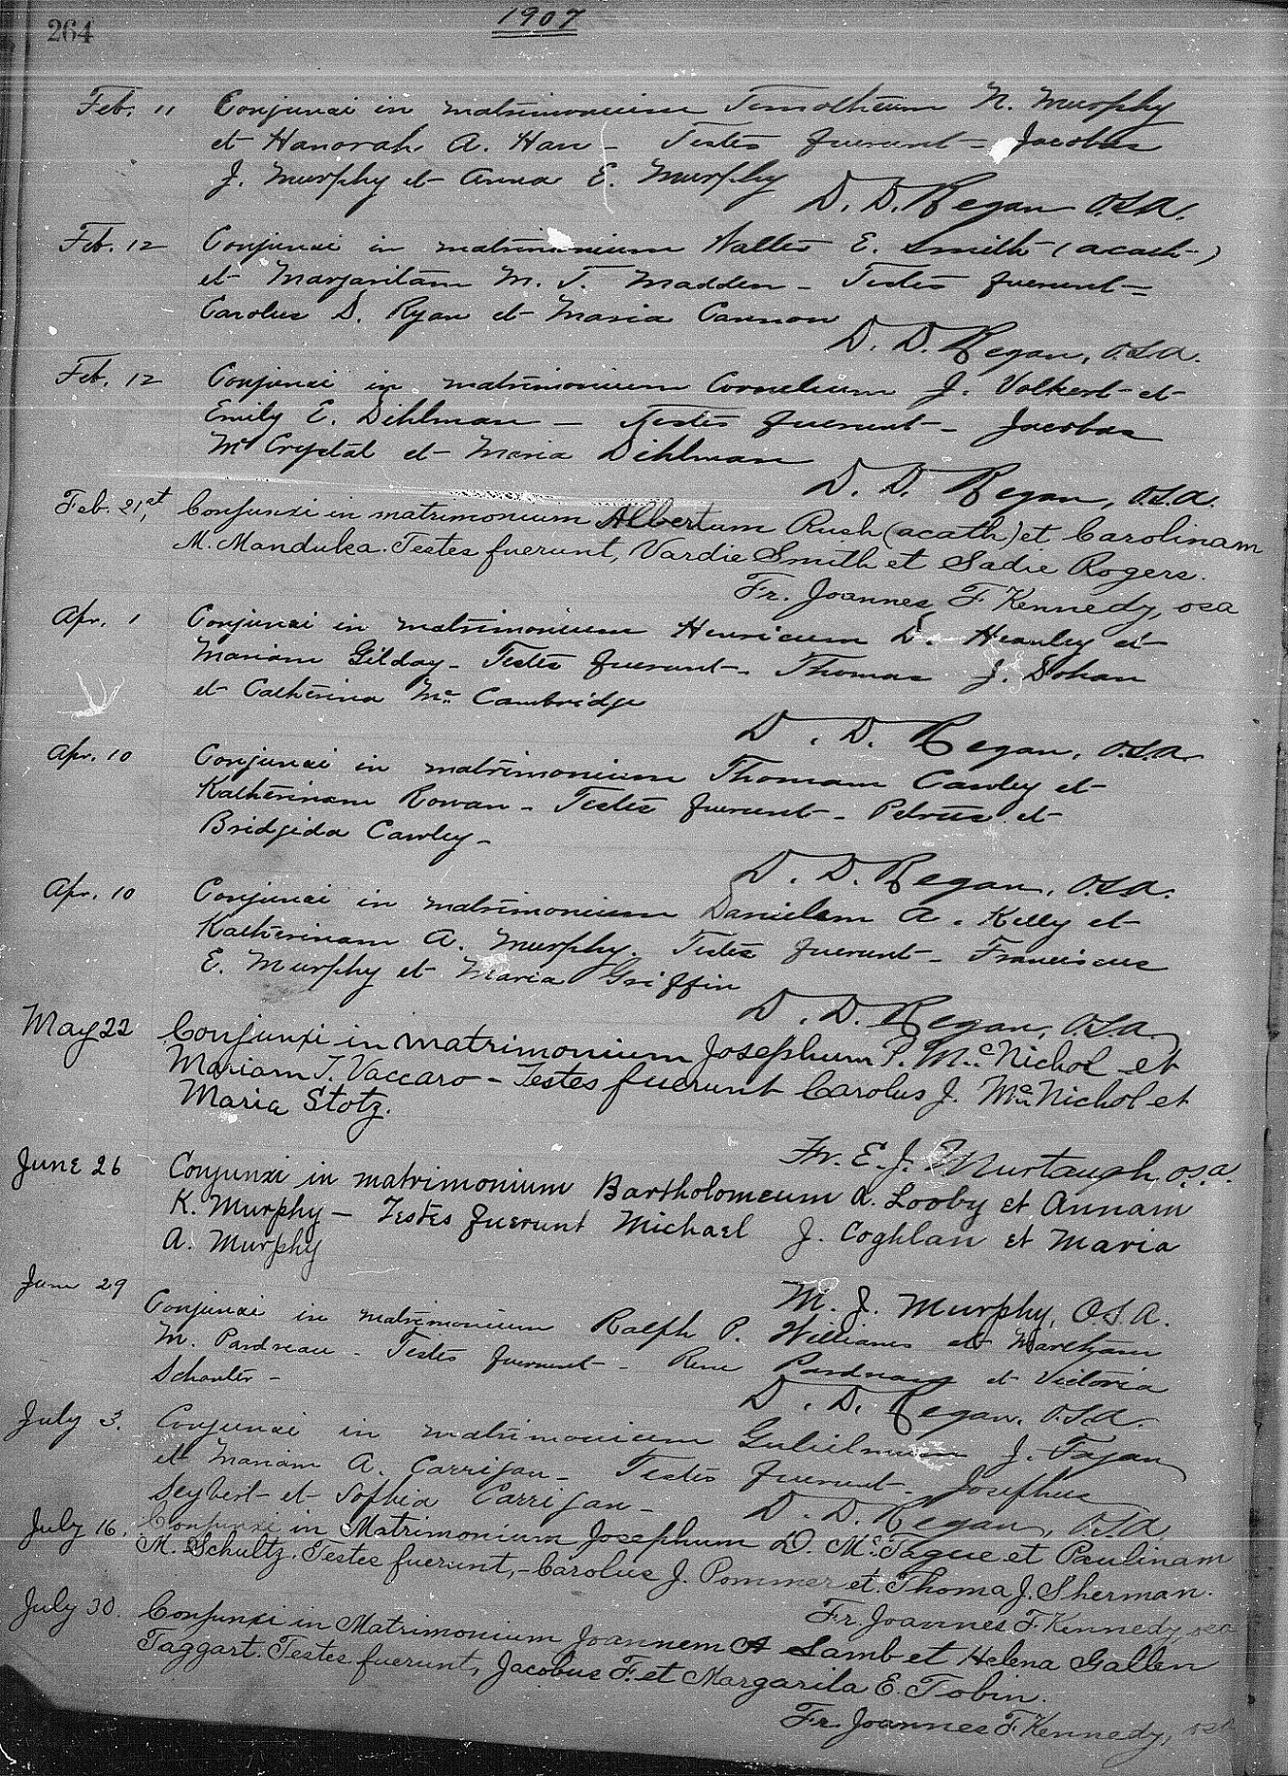 264
1907
Feb. 11 Conjunxi in matrimonium Timotheum N. Murphy
et Hanorah A. Han - Testes fuerunt - Jacobus
J. Murphy et Anna E. Murphy
D. D. Regan O.S.A.
Feb. 12 Conjunxi in matrimonium Walter E. Smith (acath-)
et Margaritam M. T. Madden - Testes fuerunt -
Carolus S. Ryan et Maria Cannon
D. D. Regan, O.S.A.
Feb. 12 Conjunxi in matrimonium Cornelium J. Volkert et
Emily E. Dihlman - Testes fuerunt - Jacobus
McCrystal et Maria Dihlman
D. D. Regan, O.S.A.
Feb. 21,st Conjunxi in matrimonium Albertum Rush (acath) et Carolinam
M. Manduka. Testes fuerunt, Vardie Smith et Sadie Rogers.
Fr. Joannes F. Kennedy, osa
Apr. 1 Conjunxi in matrimonium Henricum D. Heanley et
Mariam Gilday - Testes fuerunt - Thomas J. Dohan
et Catherina Mc Cambridge
D. D. Regan, O.S.A.
Apr. 10 Conjunxi in matrimonium Thomam Cawley et
Katherinam Rowan - Testes fuerunt - Petrus et
Bridgida Cawley -
D. D. Regan, O.S.A.
Apr. 10 Conjunxi in matrimonium Danielem A. Kelly et
Katherinam A. Murphy Testes fuerunt - Franciscus
E. Murphy et Maria Griffin
D. D. Regan, O.S.A.
May 22 Conjunxi in matrimonium Josephum P. McNichol et
Mariam T. Vaccaro - Testes fuerunt Carolus J. McNichol et
Maria Stotz.
Fr. E. J. Murtaugh, o.s.a.
June 26 Conjunxi in matrimonium Bartholomeum A. Looby et Annam
K. Murphy - Testes fuerunt Michael J. Coghlan et Maria
A. Murphy
M. J. Murphy, O.S.A.
June 29 Conjunxi in matrimonium Ralph P. Williams et
M. Pardreau - Testes fuerunt - Rene Pardreau et Victoria
Schanter -
D. D. Regan, O.S.A.
July 3. Conjunxi in matrimonium Gulielmum J. Fagan
et Mariam A. Carrigan - Testes fuerunt - Josephus
Seybert et Sophia Carrigan -
D. D. Regan, O.S.A.
July 16. Conjunxi in Matrimonium Josephum D. McTague et Paulinam
M. Schultz. Testes fuerunt, - Carolus J. Pommer et Thoma J. Sherman.
Fr. Joannes F. Kennedy, osa
July 30. Conjunxi in Matrimonium Joannem A Lamb et Helena Gallen
Taggart. Testes fuerunt, Jacobus F. et Margarita E. Tobin.
Fr. Joannes F. Kennedy, osa